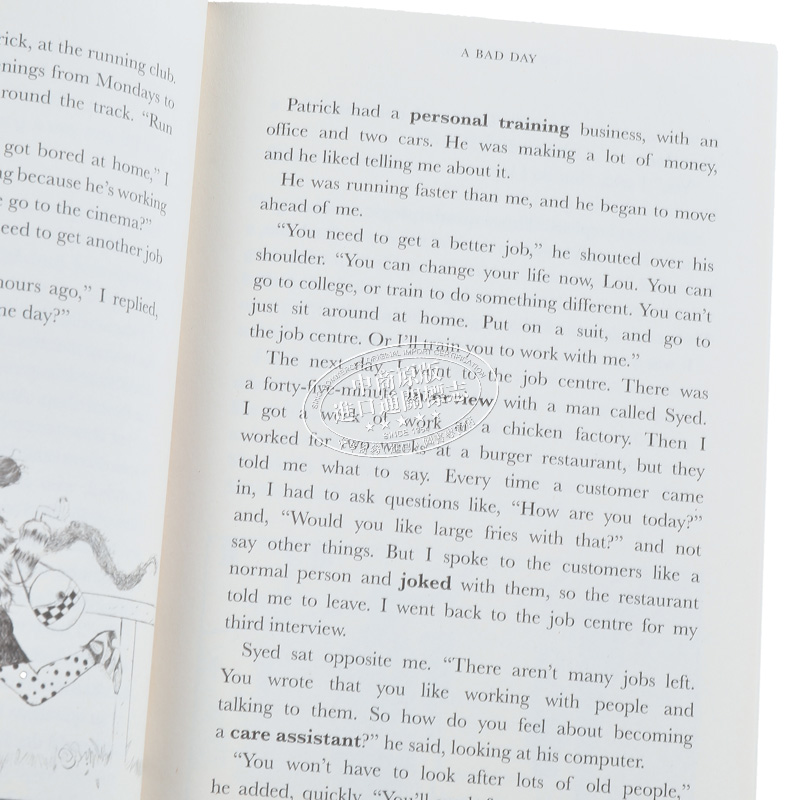 rick, at the running club.
nings from Mondays to
round the track. “Run
got bored at home,” I
ng because he’s working
e go to the cinema?”
eed to get another job
hours ago,” I replied,
he day?”
A BAD DAY
Patrick had a personal training business, with an
office and two cars. He was making a lot of money,
and he liked telling me about it.
He was running faster than me, and he began to move
ahead of me.
“You need to get a better job,” he shouted over his
shoulder. “You can change your life now, Lou. You can
go to college, or train to do something different. You can’t
just sit around at home. Put on a suit, and go to
the job centre. Or I’ll train you to work with me.”
The next day, I went to the job centre. There was
a forty-five-minute interview with a man called Syed.
I got a week of work at a chicken factory. Then I
worked for two weeks at a burger restaurant, but they
told me what to say. Every time a customer came
in, I had to ask questions like, “How are you today?”
and, “Would you like large fries with that?” and not
say other things. But I spoke to the customers like a
normal person and joked with them, so the restaurant
told me to leave. I went back to the job centre for my
third interview.
Syed sat opposite me. “There aren’t many jobs left.
You wrote that you like working with people and
talking to them. So how do you feel about becoming
a care assistant?” he said, looking at his computer.
“You won’t have to look after lots of old people,”
he added, quickly. “You’ll
ORIGINAL IMPORT CERTIFICATION
中商原版
進口通關標志
SINCE